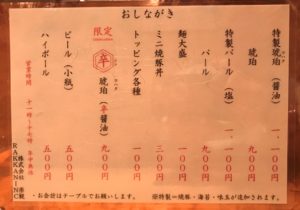 おしながき
特製琥珀（醤油） 一、一〇〇円
琥珀 九〇〇円
特製パール（塩） 一、一〇〇円
パール 九〇〇円
麺大盛 一〇〇円
ミニ焼豚丼 三〇〇円
トッピング各種 一〇〇円
限定
辛
琥珀（辛醤油） 九〇〇円
ビール（小瓶） 五〇〇円
ハイボール 五〇〇円
営業時間 十一時〜十七時 年中無休
株式会社 楽観
RAKKAN INC
※特製…焼豚・海苔・味玉が追加されます。
・お会計はテーブルでお願いします。